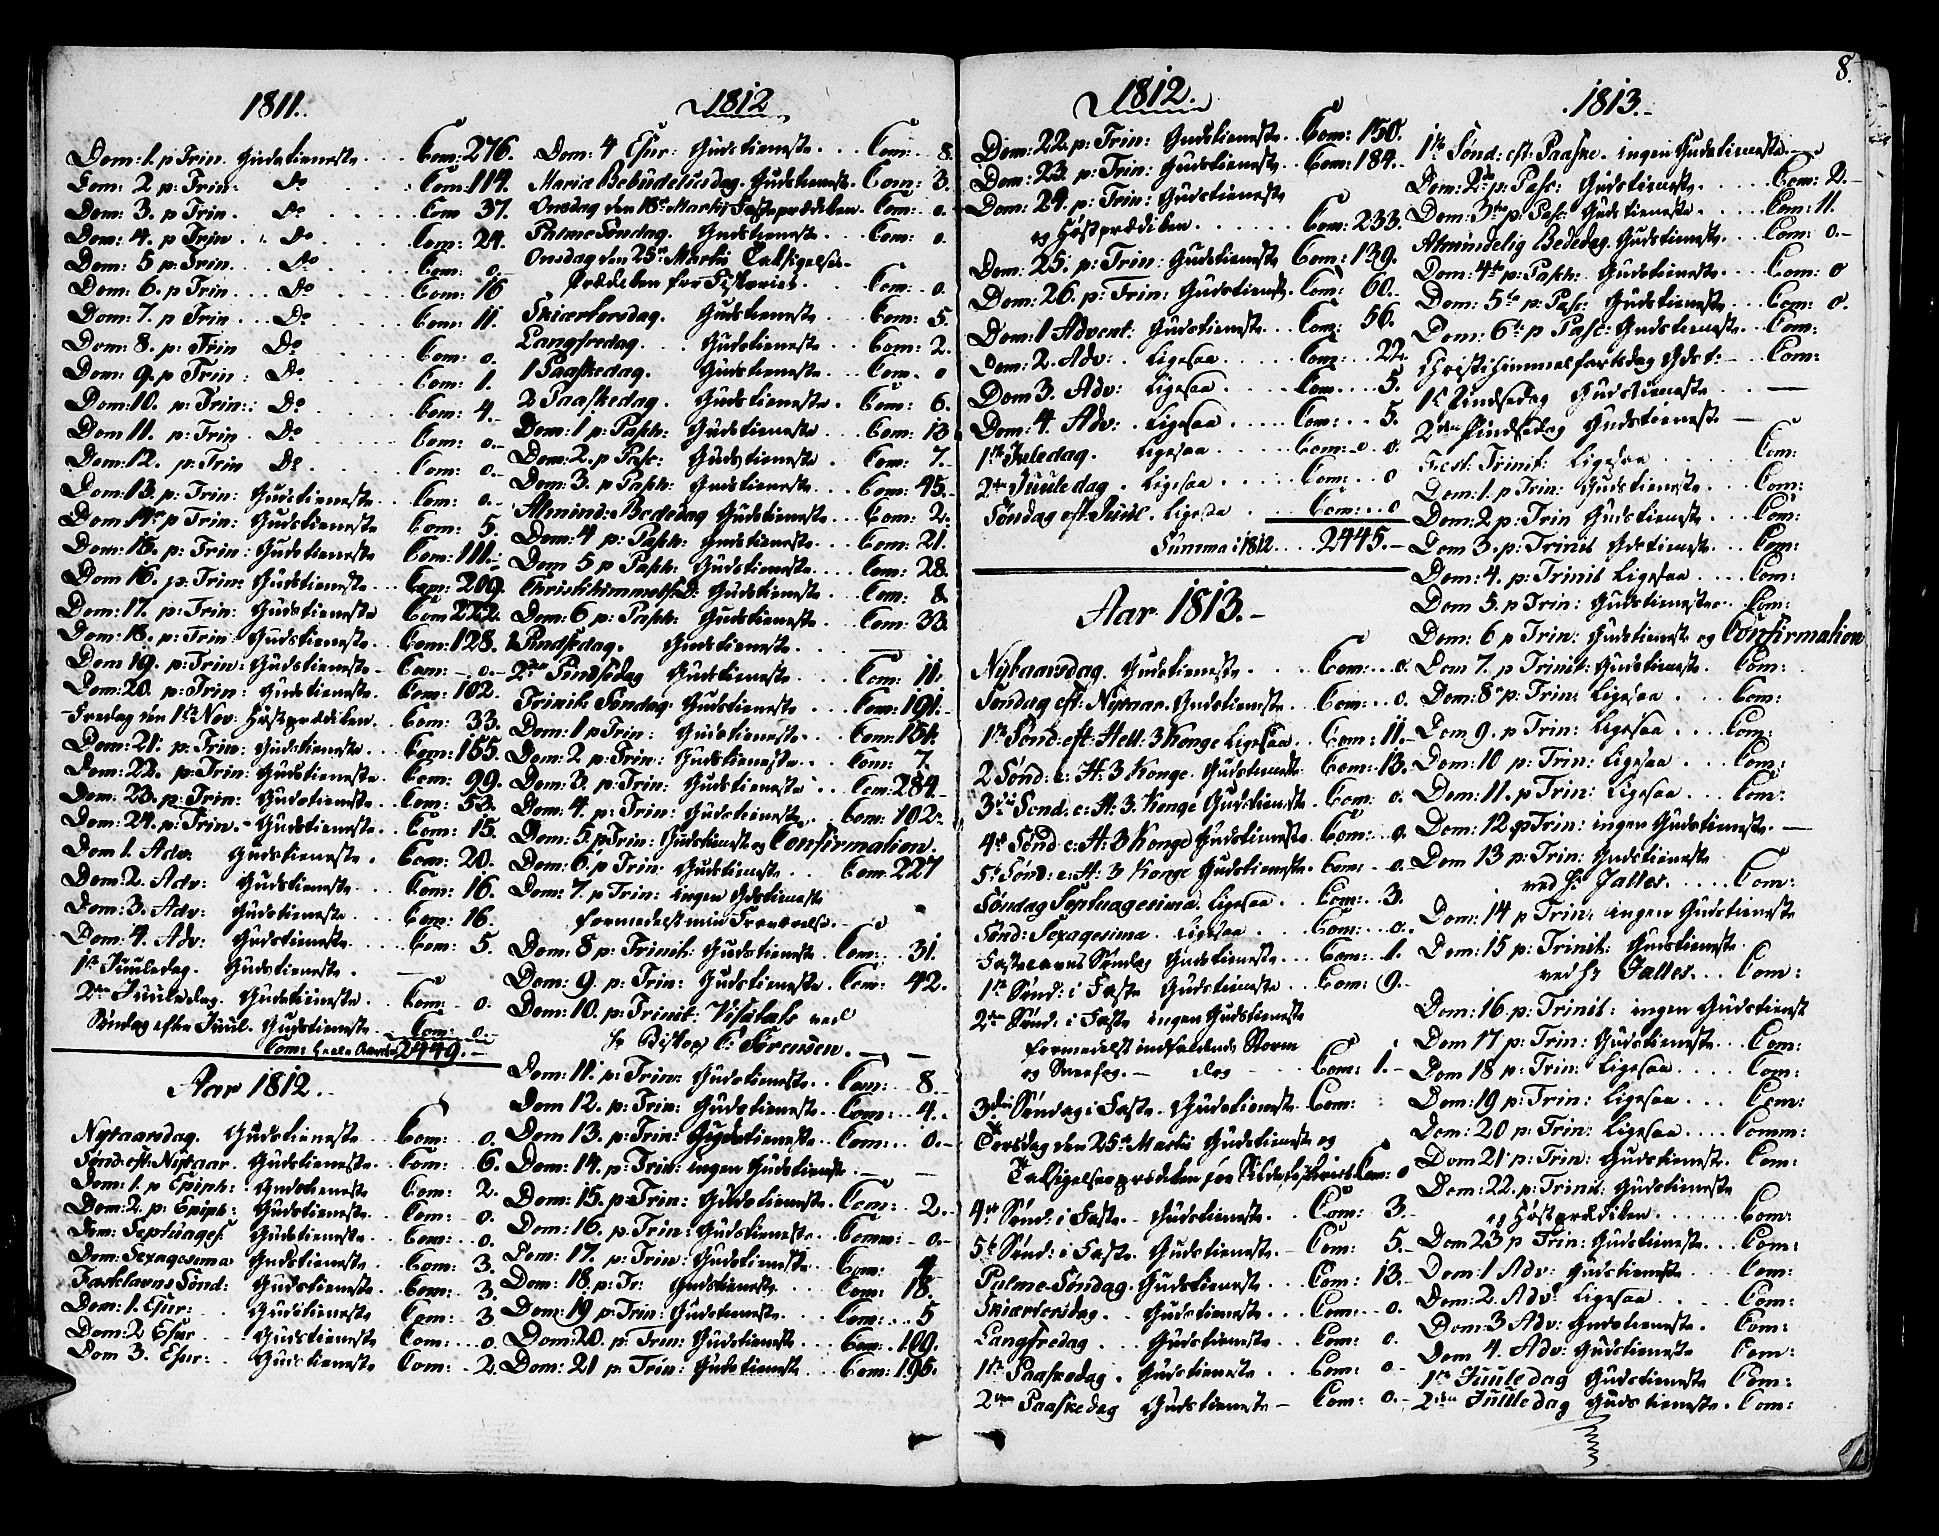 1811.
Dom: 1. p Trin. Gudstieneste . . . Com: 276.
Dom: 2 p: Trin: Do . . . . . Com: 114.
Dom: 3. p Trin. Do . . . . Com 37.
Dom: 4. p Trin . . Do . . . . Com: 24.
Dom: 5 p: Trin. . . Do . . . . Com: o.-
Dom: 6. p Trin . . . Do . . . . Com: 16
Dom: 7. p Trin . . . Do . . . . Com: 11.
Dom: 8. p: Trin Do . . . . Com: o.
Dom: 9. p Trin : Do . . . . Com: 1.
Dom: 10. p: Trin: : Do . . . . Com: 4.
Dom 11. p: Trin . Do . . . . Com: o.-
Dom: 12. p: Trin Do . . . . Com: o.-
Dom: 13. p: Trin: Gudstieneste . . Com: o.-
Dom 14de p Trin: Gudstieneste . . Com: 5.
Dom: 15. p: Trin: Gudstieneste . . Com: 111.-
Dom 16. p: Trin: Gudstieneste . . Com: 209.
Dom: 17. p: Trin: Gudstieneste Com 222.
Dom: 18. p: Trin: Gudstieneste . . Com: 128.
Dom 19. p: Trin: Gudstieneste - Com: - o.-
Dom: 20. p: Trin: Gudstieneste . Com: 102.
Fredag den 1ste Nov: Høstprædiken . Com: 33.
Dom: 21: p: Trin: Gudstieneste . . Com: 155.
Dom: 22. p: Trin: Gudstieneste . Com: 99.
Dom: 23. p: Trin: Gudstieneste . . Com: 53.
Dom: 24. p: Trin. - Gudstieneste . . Com: 15.
Dom 1. Adv: Gudstieneste . Com: 20.
Dom: 2. Adv: Gudstieneste . . Com: 16.
Dom: 3. Adv: Gudstieneste . . . Com: 16.
Dom: 4. Adv: Gudstieneste . . . Com: 5.
1ste Juuledag. Gudstieneste . —
2den Juuledag. Gudstieneste . . Com: o.
Søndag efter Juul. Gudstieneste . . Com: o.-
Com: heele Aaret 2449.-
Aar 1812.
Nytaarsdag. Gudstieneste . . . Com: o.
Sønd: eft: Nytaar. Gudstieneste . . Com: 6.
Dom: 1. p Epiph: Gudstieneste Com: 2.
Dom: 2. p: Epiph: Gudstieneste . . Com: o.
Dom: Septuages. Gudstieneste . . Com: o.
Dom: Sexagesima Gudstieneste . . Com: 3.
Fastelavns Sønd: Gudstieneste . . Com: 3.
Dom: 1. Esur: . Gudstieneste . . Com: 3
Dom: 2 Esur . . Gudstieneste . . Com: . . o.
Dom 3. Esur: . . Gudstieneste . Com: . . 2.
1812
Dom: 4 Esur: Gudstieneste . . . Com: . . 8.
Mariæ Bebudelses dag. Gudstieneste . Com: 3.
Onsdag den 18de Martii Fasteprædiken . Com: . o.
Palme Søndag. Gudstieneste . . . Com: o.
Onsdag den 25de Martii Taksigelses-
Prædiken for Fiskeriet. . . . Com: . o.
Skiærtorsdag. Gudstieneste . . . Com: 5.
Langfredag. . . Gudstieneste . . . Com: 2.
1 Paaskedag. Gudstieneste . . . Com. o
2 Paaskedag. Gudstieneste . Com: 6.
Dom: 1 p: Pasch: Gudstieneste . . Com: 13
Dom: 2. p Pasc: Gudstieneste . Com: 7.
Dom: 3. p Pasch: Gudstieneste . . Com: 45.
Almind: Bededag Gudstieneste . . Com: 2.
Dom: 4 p: Pasch: Gudstieneste . . Com: 21.
Dom 5 p Pasch: Gudstieneste . . . Com: 28.
Christi himmelf: D: Gudstieneste . . Com: 8.
Dom: 6 p: Pasch: Gudstieneste . . Com: 33.
1 Pindsedag. Gudstieneste . . . —
2den Pindsedag Gudstieneste . . . Com: 11.
Trinit: Søndag: Gudstieneste . . . Com: 191.
Dom: 1 p Trin: Gudstieneste . . Com: 154.
Dom: 2 p: Trin: Gudstieneste . . Com: 7.
Dom: 3. p: Trin: Gudstieneste . Com: 284
Dom: 4. p: Trin: Gudstieneste . . Com: 102.
Dom: 5. p Trin: Gudstieneste og Confirmation.
Dom: 6. p Trin: Gudstieneste . . Com: 227
Dom: 7. p Trin: ingen Gdstieneste
formedelst min Fraværelse. - - o
Dom: 8 p: Trinit: Gudstieneste Com: 31.
Dom: 9. p: Trin: Gudstieneste . Com: 42.
Dom: 10. p: Trinit: Visitats ved
Hr Biskop C: Sørensen. — —
Dom: 11. p: Trin: Gudstieneste . Com: . . 8.-
Dom 12. p: Trin: Gudstieneste . . Com: . . 4.
Dom 13. p: Trin: Gudstieneste . . Com: . . o.-
Dom: 14. p: Trin: ingen Gudstieneste . —
Dom: 15. p: Trin: Gudstieneste . . Com: . 2.
Dom: 16. p: Trin: Gudstieneste . . Com: - o.-
Dom: 17. p: Trin: Gudstieneste . . . Com: 4
Dom: 18. p: Tr: Gudstieneste . . . . Com: 18.
Dom: 19 p: Trin: Gudstieneste . . . Com: . . 5
Dom: 20. p: Trin: Gudstieneste . . . Com: . 109.
Dom: 21 p: Trin: Gudstieneste . . Com: 195.
1812.
Dom: 22. p: Trin: Gudstieneste . . Com: 150.
Dom: 23. p: Trin: Gudstieneste . . Com: 184.-
Dom: 24. p: Trin: Gudstieneste
og Høstprædiken . . . . . Com: 233.
Dom: 25. p: Trin: Gudstieneste Com: 139.
Dom: 26. p: Trin: Gudstieneste . Com: 60.
Dom: 1 Advent: Gudstieneste . . Com: 56.
Dom: 2. Adv: . Ligesaa . . . . Com: . . 22.
Dom 3. Adv: Ligesaa . . . . Com . . . 5.
Dom: 4. Adv: . Ligesaa . . . . Com: . . 5.
1ste Juledag. Ligesaa . . . . Com: . . o.
2den Juuledag . Ligesaa . . . . Com: . . o
Søndag eft: Juul . Ligesaa . . . Com: . . o
Summa i 1812. . . . 2445.-
Aar 1813.-
Nytaarsdag. Gudstieneste . . . Com: . . o.
Søndag eft: Nytaar. Gudstieneste . . Com: . . o.
1ste Sønd: eft: Hell: 3 Konge Ligesaa . . Com: 11.-
2 Sønd: e: H: 3 Konge. Gudstieneste Com: 13.
3die Sønd: e: H: 3. Konge Gudstieneste . Com: o.
4de Sønd: e: H: 3 Konge Gudstieneste . Com: o.
5te Sønd: e: H: 3 Konge Gudstieneste . Com: . o.-
Søndag Septuagesima. Ligesaa . . Com: . . 3.
Sønd: Sexagesima . Ligesaa . . Com: . . o.
Fastelavns Søndag Gudstieneste . . Com: . 1.
1ste Sønd: i Faste Gudstieneste . . Com: 9.-
2den Sønd: i Faste ingen Gudstieneste
formedelst indfaldende Storm
og Sneefog. - dog - - Com: 1.-
3die Søndag i Faste. Gudstieneste Com:
Torsdag den 25de Martii Gudstieneste og
Taksigelsesprædiken for Sildefiskeriet Com: o
4de Sønd: i Faste. - Gudstieneste. Com: 3.-
5te Sønd: i Faste. Gudstieneste. - Com: 5.-
Palme-Søndag. Gudstieneste . . . Com: 13.-
Skiærtorsdag. . Gudstieneste . . . Com: . . o.
Langfredag . . . Gudstieneste . . . Com: o.
1ste Paaskedag . Gudstieneste . . . Com: . o -
2den Paaskedag Gudstieneste - Com: o.-
8.
1813.-
1ste Sønd: eft: Paaske. ingen Gudstieneste. - o
Dom: 2den p: Pasc: Gudstieneste . . . . . Com: 2.-
Dom: 3die p: Pasc: Gudstieneste . . . . Com: 11.
Almindelig Bededag. Gudstieneste . . . Com: o.-
Dom: 4de p: Pasch: Gudstieneste . . . Com: o
Dom: 5te p: Pasc: Gudstieneste . . . Com: o.
Dom: 6te p Pasc: Gudstieneste . . . Com:
Christi Himmelfartsdag Gdst: - - Com:
1ste Pindsedag Gudstieneste —
2den Pindsedag Gudstieneste —
Fest: Trinit: Ligesaa . . . . Com:
Dom: 1. p Trin: Gudstieneste . . Com:
Dom: 2 p Trin Gudstieneste . . . Com:
Dom 3. p: Trinit Gdstieneste . . . Com:
Dom: 4. p: Trinit Ligesaa . . . . Com:
Dom 5. p Trin: Gudstieneste . . Com:
Dom: 6 p Trin: Gudstieneste og Confirmation
Dom 7. p Trinit: Gudstieneste . Com:
Dom: 8. p: Trin: Ligesaa . . . Com:
Dom 9. p Trin: Ligesaa . . . Com:
Dom: 10 p: Trin: Ligesaa . . . Com:
Dom: 11. p Trin: Ligesaa . . . Com:
Dom: 12 p Trin: ingen Gudstieneste. —
Dom 13 p: Trin: Gudstieneste
ved Hr Jalles. . . . . Com:
Dom: 14 p Trin: ingen Gudstieneste
Dom: 15 p: Trinit: Gudstieneste
ved Hr Jalles. . . Com:
Dom: 16 p: Trinit: ingen Gudstieneste
Dom 17 p: Trin: Gudstieneste . . . Com:
Dom 18 p: Trin: Ligesaa . . . . Com:
Dom: 19 p: Trin: Ligesaa . . . . Com:
Dom: 20 p: Trin: Ligesaa . . . . Comm:
Dom 21 p: Trin: Gudstieneste . Com:
Dom: 22. p: Trinit: Gudstieneste
og Høstprædiken . . . . . . Com:
Dom 23 p Trin: Gudstieneste . . . Com:
Dom: 1 Adv: Gudstieneste . . . Com:
Dom: 2. Adv: Ligesaa . . . . Com:
Dom: 3 Adv: Gudstieneste . Com:
Dom 4. Adv: Gudstieneste Com:
1ste Juuledag Gudstieneste Com:
2den Juuledag Gudstieneste . Com: